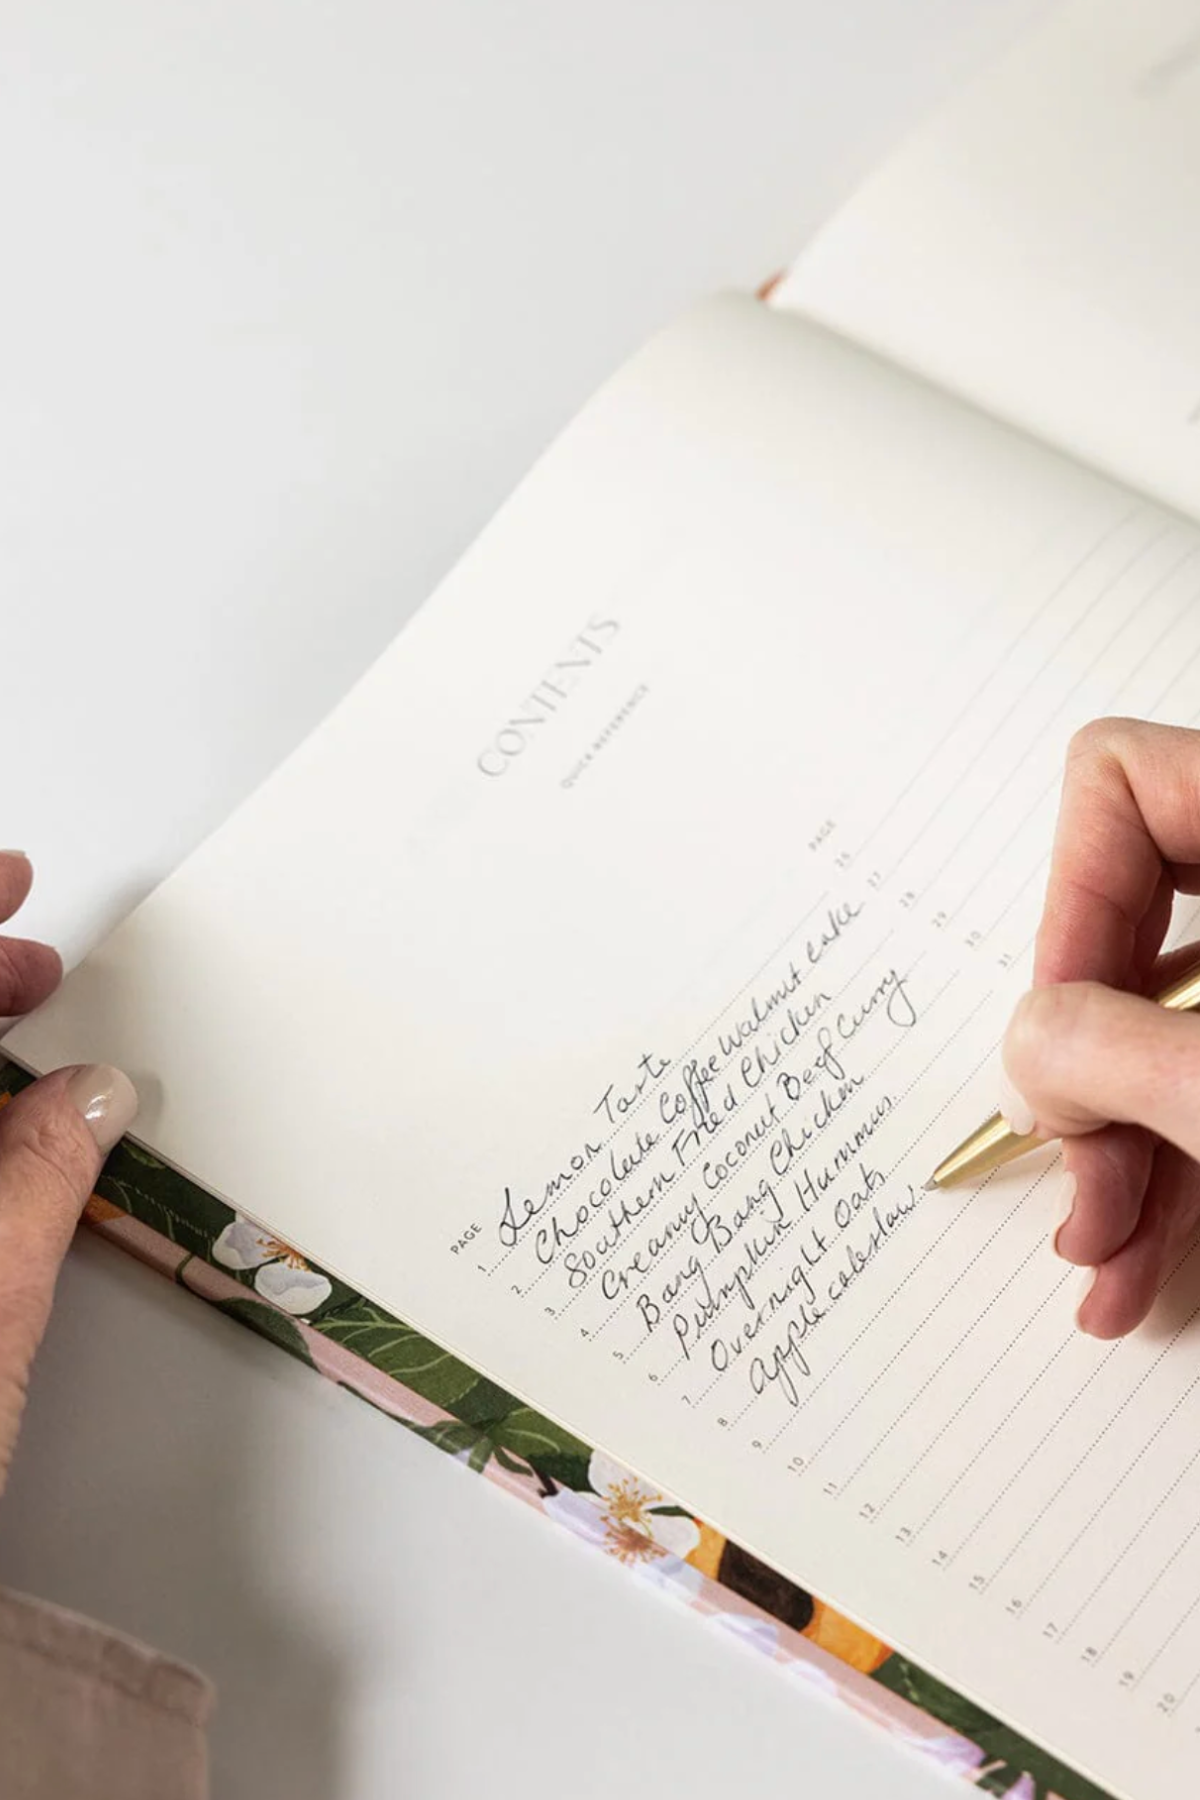 CONTENTS
QUICK REFERENCE
PAGE
1 Lemon Tarte
2 Chocolate Coffee Walnut Cake
3 Southern Fried Chicken
4 Creamy Coconut Beef Curry
5 Bang Bang Chicken
6 Pumpkin Hummus
7 Overnight Oats
8 Apple coleslaw
9
10
11
12
13
14
15
16
17
18
19
20
PAGE
26
27
28
29
30
31